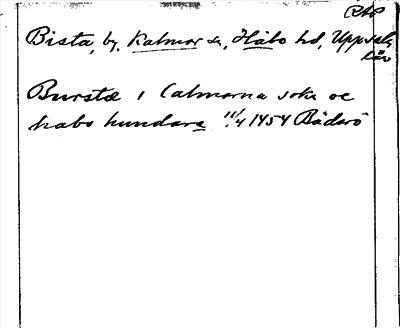 RAP
Bista, by, Kalmar sn, Håbo hd, Uppsala
län
Burstæ i Calmarna sokn oc
habo hundare 11/4 1454 Bäderö